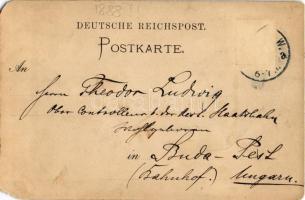 1883
DEUTSCHE REICHSPOST.
POSTKARTE.
An
Herrn Theodor Ludwig
Ober Controlleur der Staatsbahn
Hochgeboren
in Buda-Pest
(Bahnhof.) Ungarn.